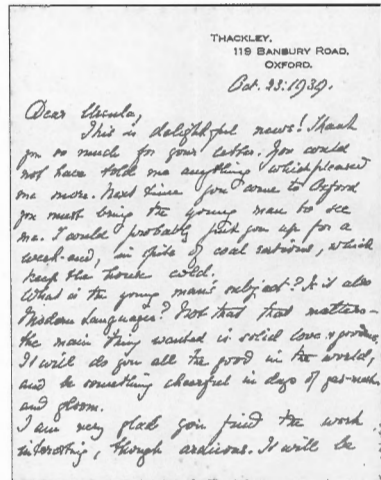 THACKLEY,
119 BANBURY ROAD,
OXFORD.
Oct. 23: 1939.
Dear Ursula,
This is delightful news! Thank
you so much for your letter. You could
not have told me anything which pleased
me more. Next time you come to Oxford
you must bring the young man to see
me. I could probably put you up for a
week-end, in spite of coal rations, which
keep the house cold.
What is the young man's subject? Is it also
Modern Languages? Not that that matters -
the main thing wanted is solid love &
It will do you all the good in the world,
and be something cheerful in days of gas-masks
and gloom.
I am very glad you find the work
interesting, though arduous. It will be